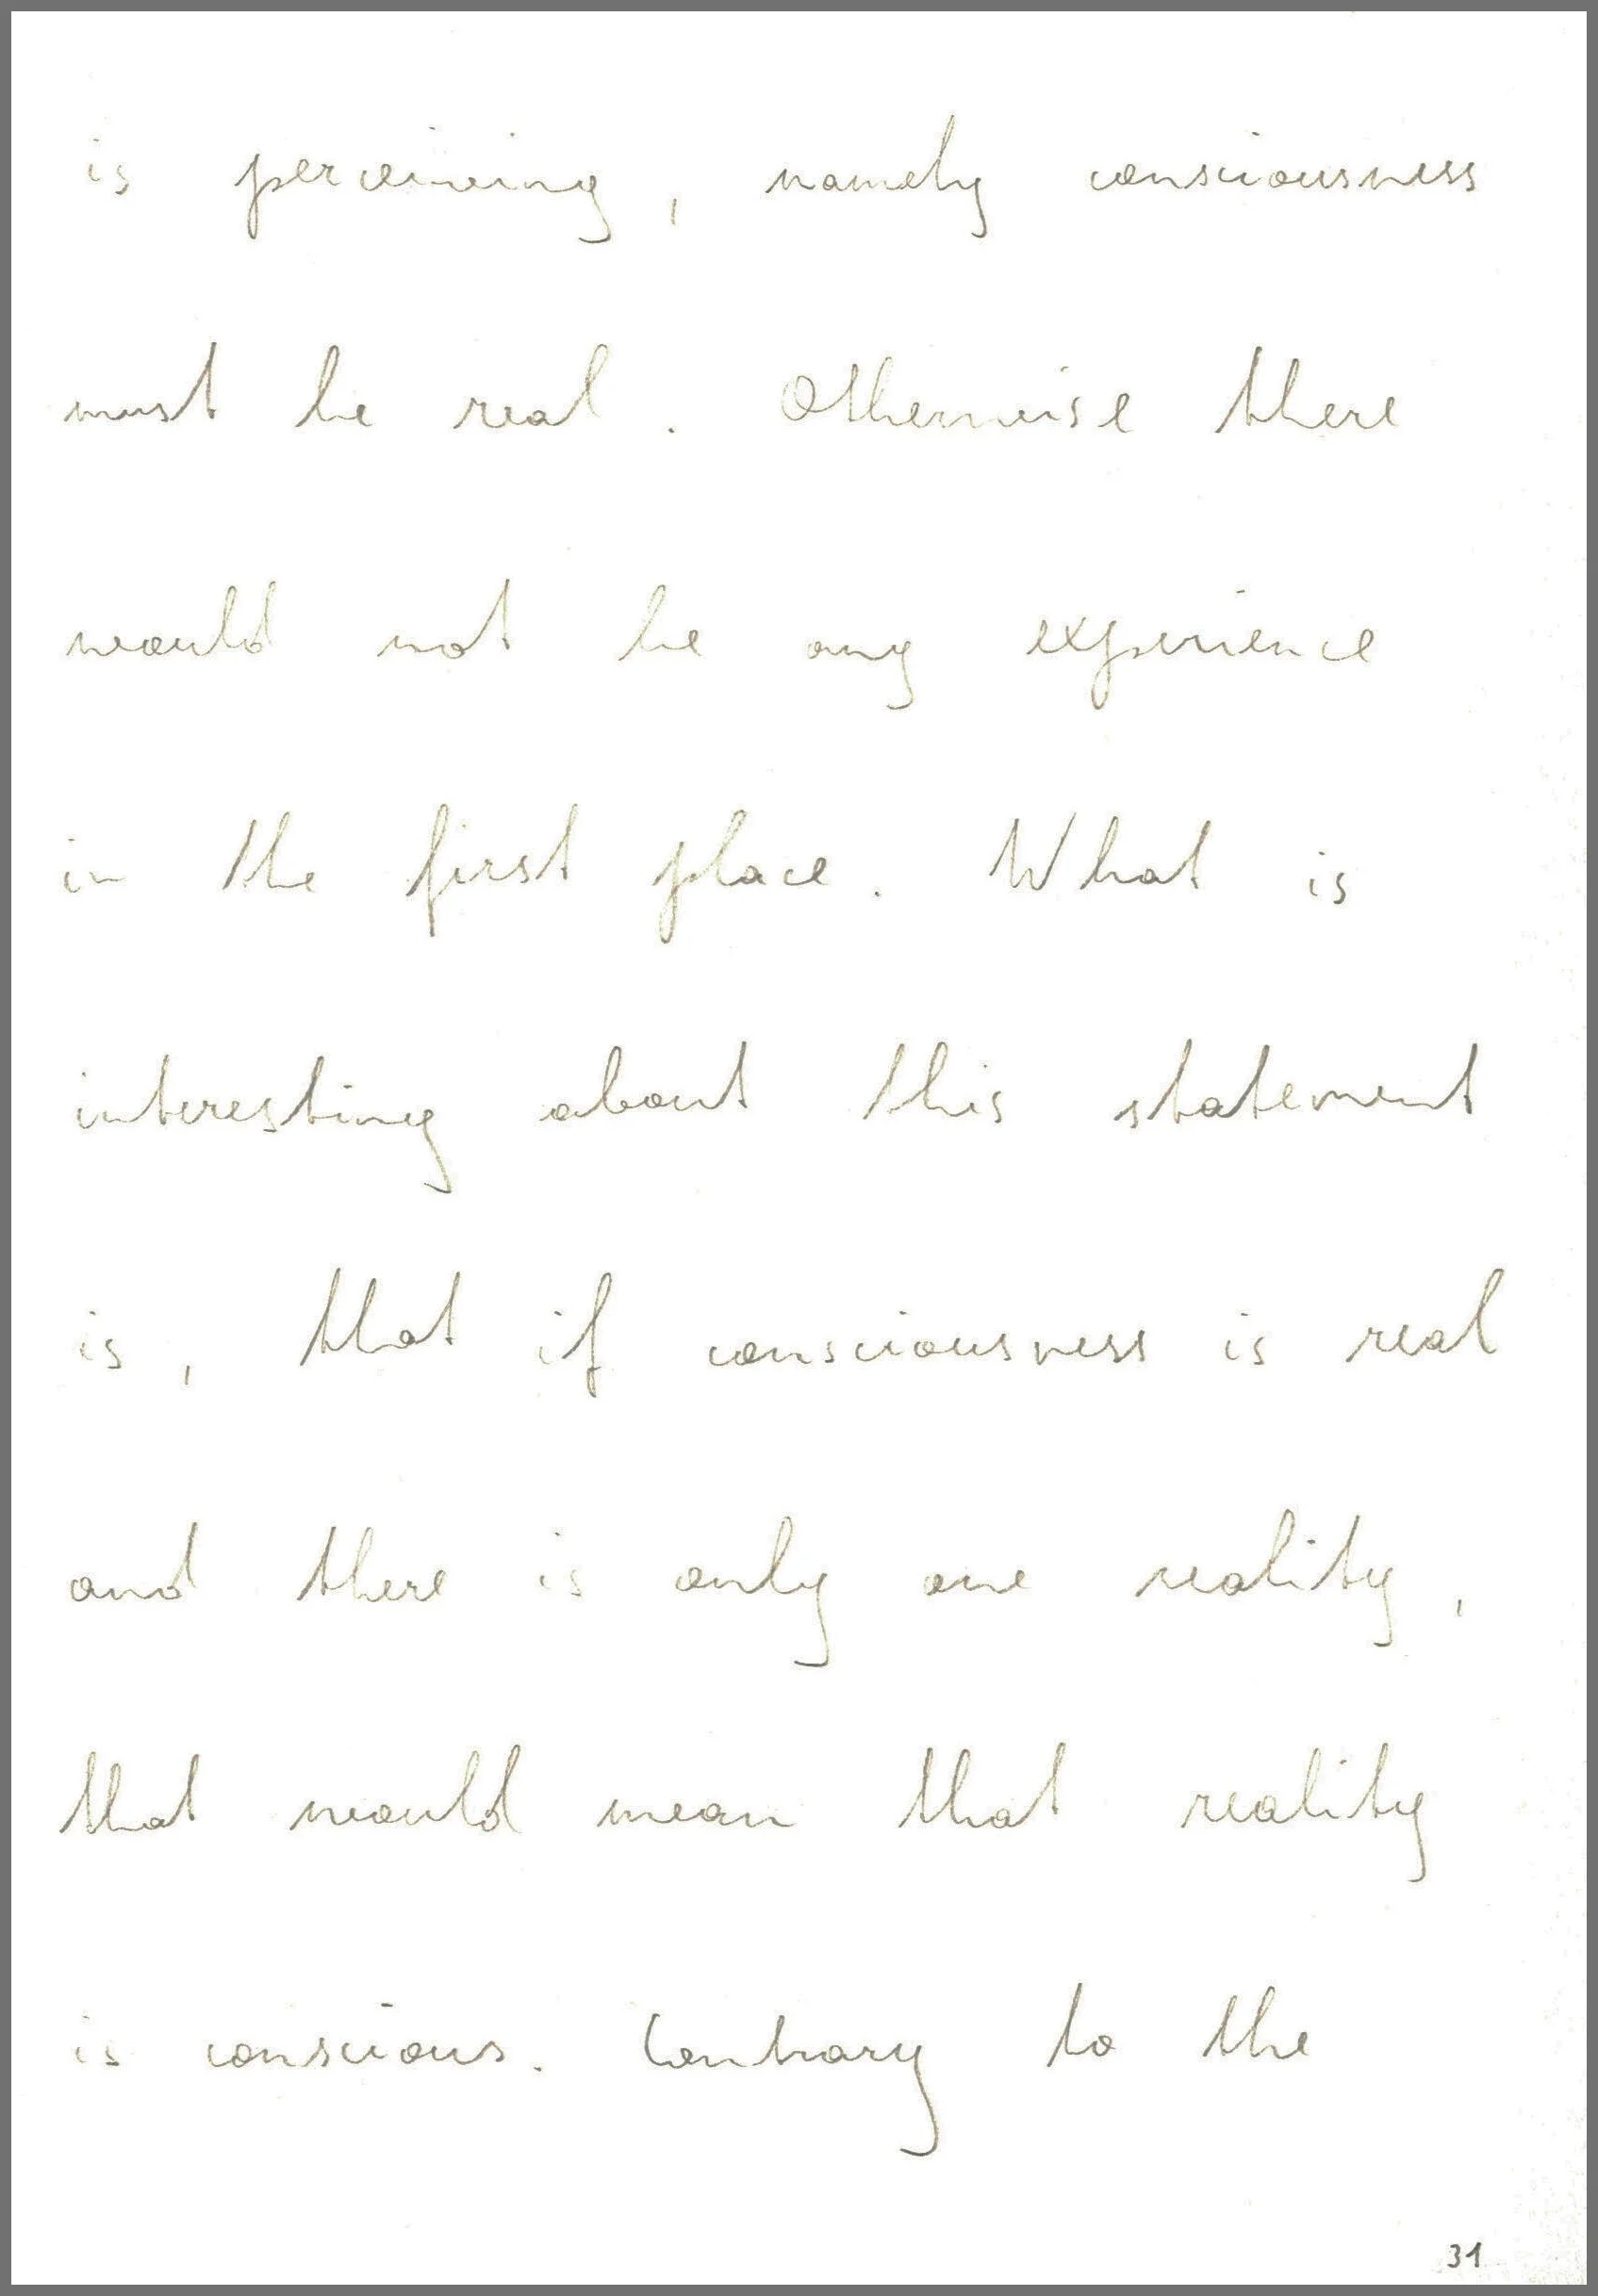 is perceiving, namely consciousness
must be real. Otherwise there
would not be any experience
in the first place. What is
interesting about this statement
is, that if consciousness is real
and there is only one reality,
that would mean that reality
is conscious. Contrary to the
31